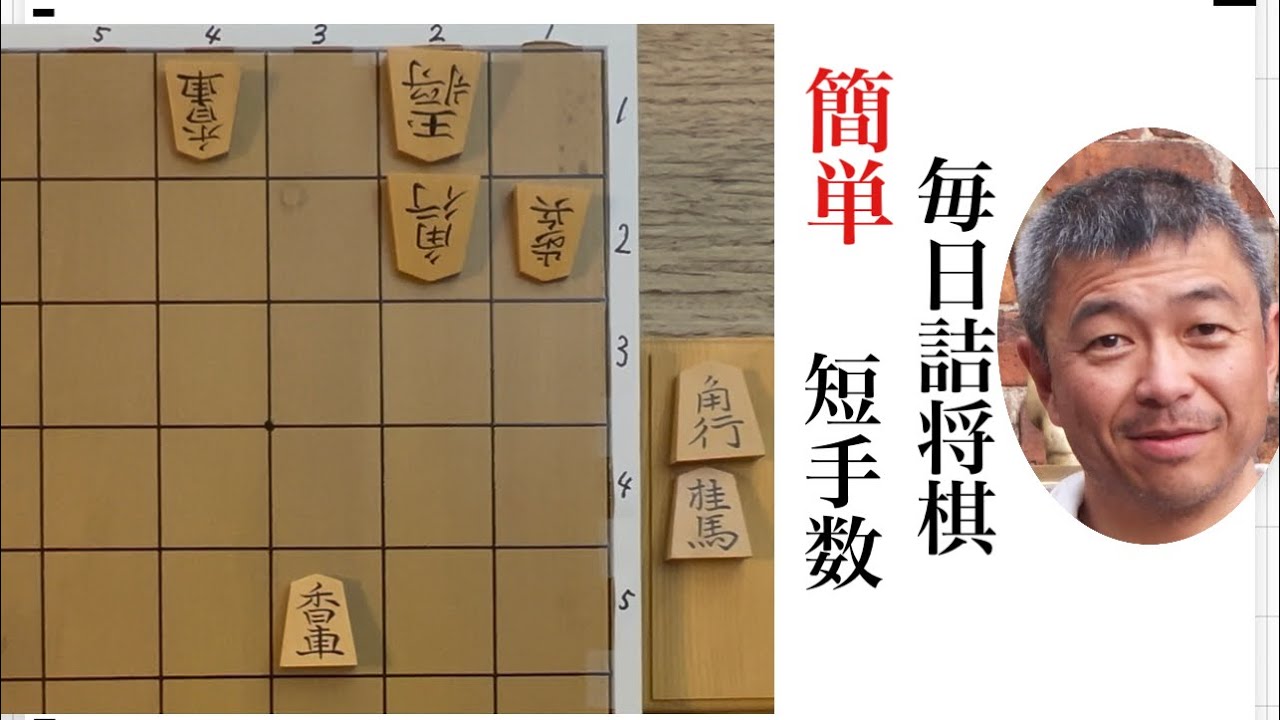 5 4 3 2 1
1
2
3
4
5
香車
玉将
角行
歩兵
角行
桂馬
香車
簡単 短手数
毎日詰将棋